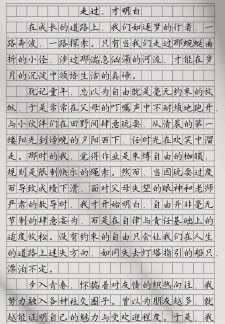 走过，才明白
在成长的道路上，我们如逐梦的行者，一
路奔波，一路探索。只有当我们走过那蜿蜒曲
折的小径，涉过那湍急汹涌的河流，才能在岁
月的沉淀中领悟生活的真谛。
我记童年，总以为自由就是毫无约束的放
纵。于是常常在父母的叮嘱声中不耐烦地跑开，
与小伙伴们在田野间肆意玩耍，从清晨的第一
缕阳光到傍晚的夕阳西下，任时光在欢笑中溜
走。那时的我，觉得作业是束缚自由的枷锁，
规则是限制快乐的绳索。然而，当因玩耍过度
而导致成绩下滑，面对父母失望的眼神和老师
严肃的教导时，我才开始明白，自由并非毫无
节制的肆意妄为，而是在自律与责任基础上的
适度放松。没有约束的自由只会让我们在人生
的道路上迷失方向，如同失去灯塔指引的船只，
漂泊不定。
步入青春，怀揣着对友情的炽热向往，我
努力融入各种社交圈子，曾以为朋友越多，就
越能证明自己的魅力与受欢迎程度。于是，我